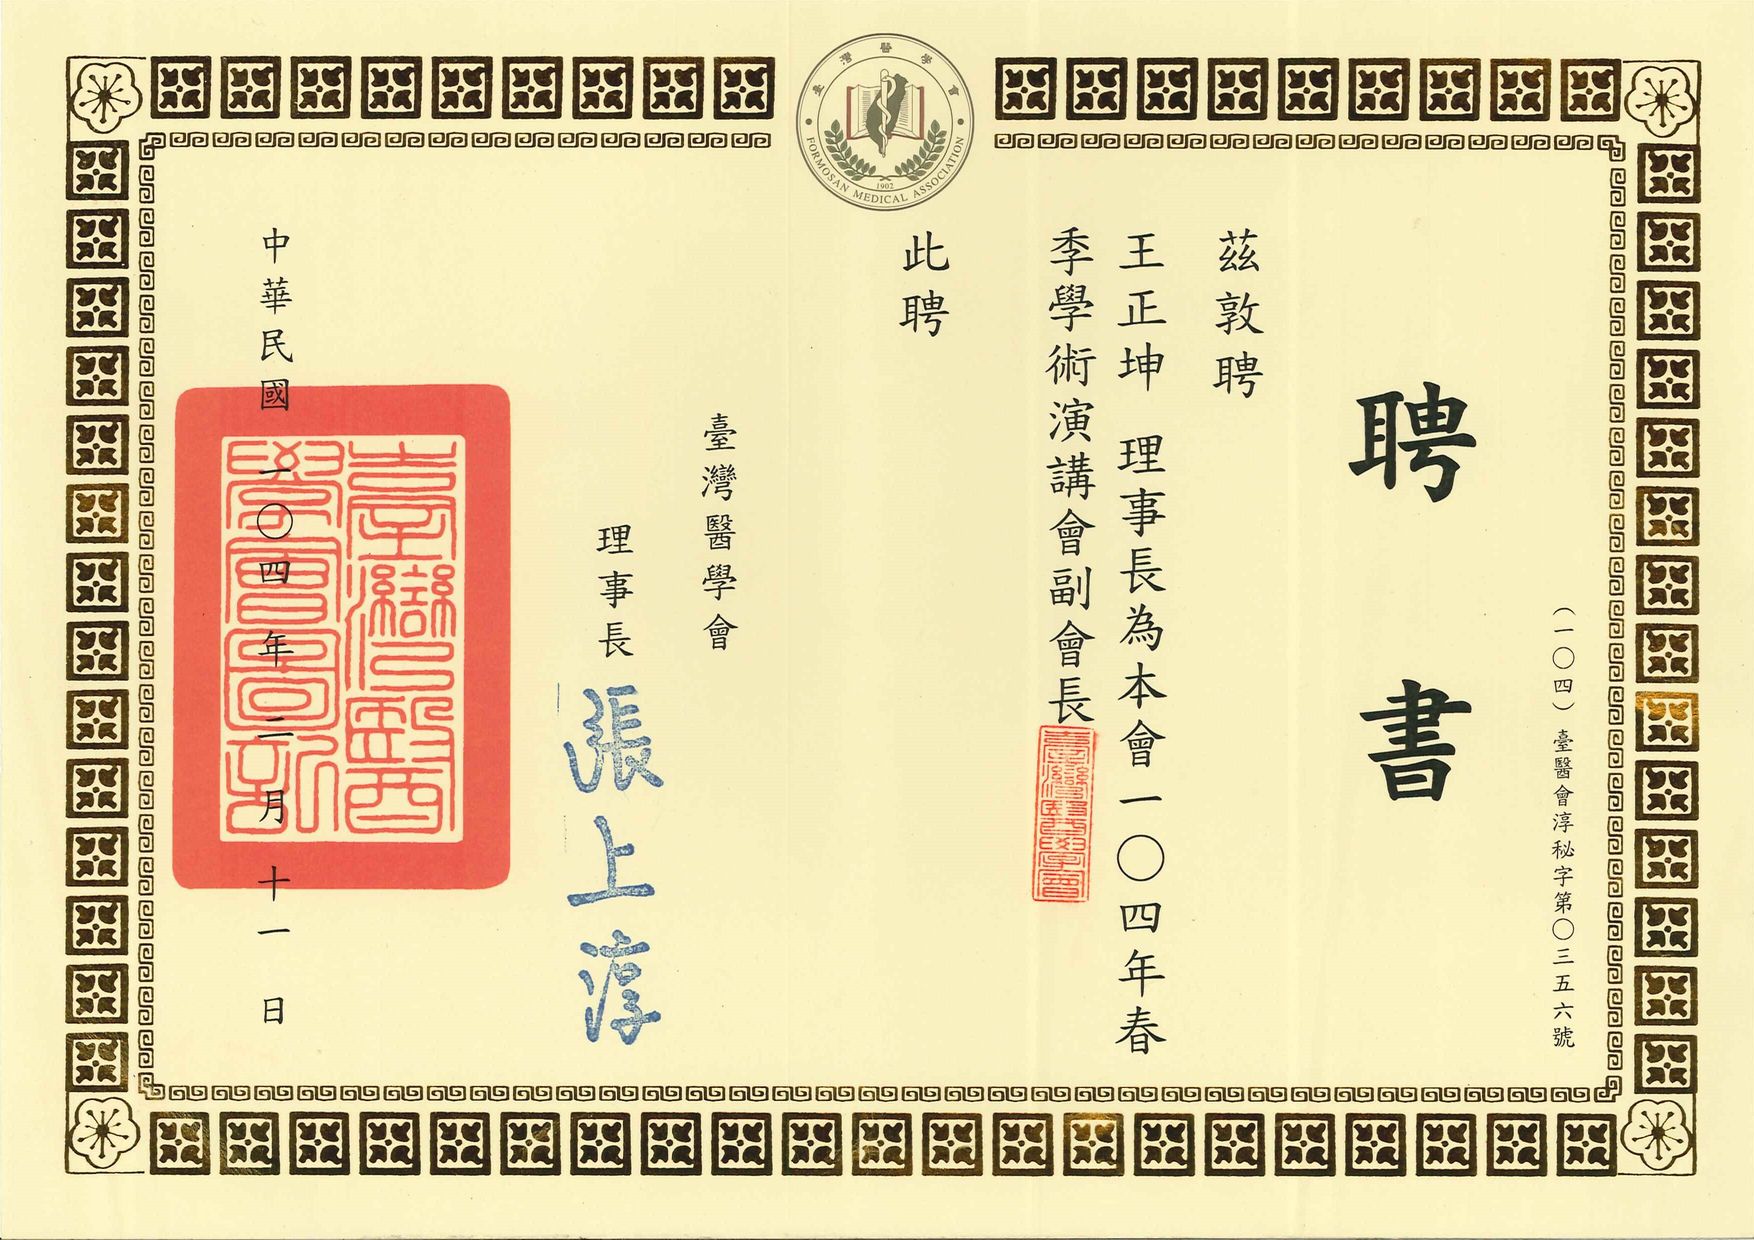 臺灣醫學會
FORMOSAN MEDICAL ASSOCIATION
1902
(一〇四)臺醫會淳秘字第〇三五六號
聘書
茲敦聘
王正坤 理事長為本會一〇四年春
季學術演講會副會長
臺灣醫學會
此聘
臺灣醫學會
理事長 張上淳
臺灣醫學會圖記
中華民國一〇四年二月十一日